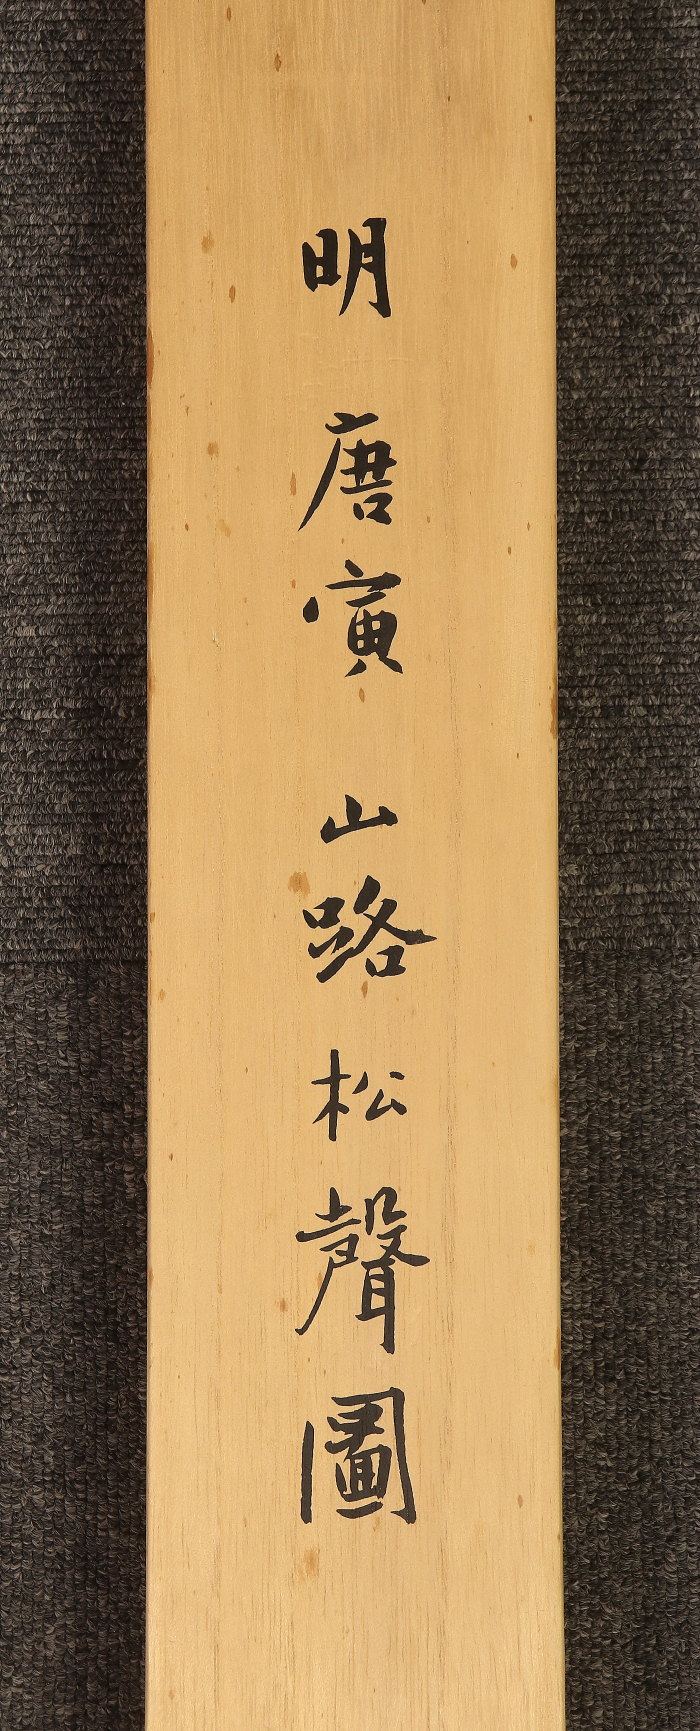 明 唐寅 山路松聲圖